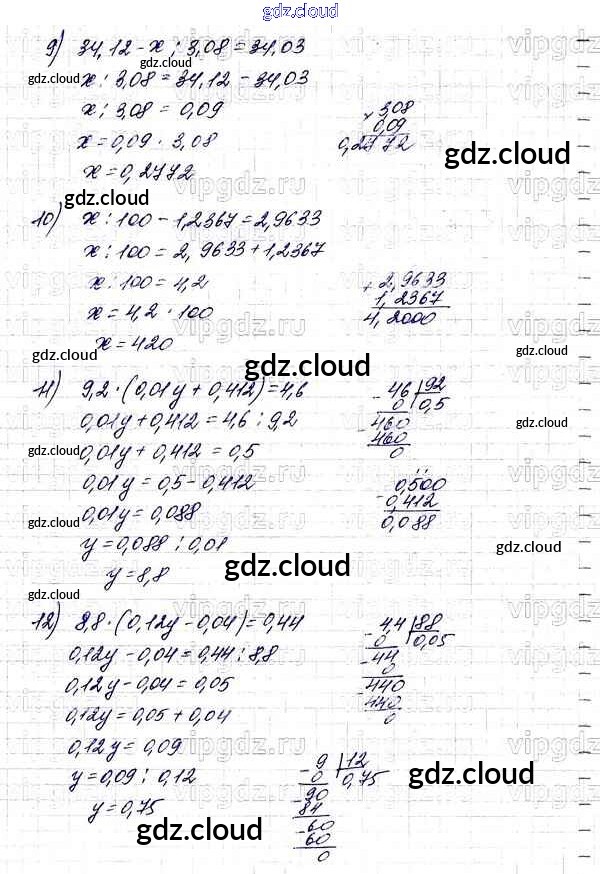 gdz.cloud
9) 34,12 - x : 3,08 = 34,03
gdz.cloud
x : 3,08 = 34,12 - 34,03
x : 3,08 = 0,09
x = 0,09 · 3,08
x = 0,2772
× 3,08
0,09
0,2772
gdz.cloud
gdz.cloud
vipgdz.ru
10) x : 100 - 1,2367 = 2,9633
x : 100 = 2,9633 + 1,2367
x : 100 = 4,2
x = 4,2 · 100
x = 420
+ 2,9633
1,2367
4,2000
vipgdz.ru
gdz.cloud
gdz.cloud
gdz.cloud
11) 9,2 · (0,01y + 0,412) = 4,6
0,01y + 0,412 = 4,6 : 9,2
gdz.cloud
0,01y + 0,412 = 0,5
0,01y = 0,5 - 0,412
gdz.cloud
0,01y = 0,088
y = 0,088 : 0,01
y = 8,8
- 46 | 92
0 | 0,5
- 460
460
0
- 0,500
0,412
0,088
gdz.cloud
gdz.cloud
gdz.cloud
12) 8,8 · (0,12y - 0,04) = 0,44
0,12y - 0,04 = 0,44 : 8,8
0,12y - 0,04 = 0,05
0,12y = 0,05 + 0,04
0,12y = 0,09
y = 0,09 : 0,12
y = 0,75
- 4,4 | 88
0 | 0,05
- 44
0
- 440
440
0
- 9 | 12
0 | 0,75
- 90
84
- 60
60
0
gdz.cloud
gdz.cloud
gdz.cloud
gdz.cloud